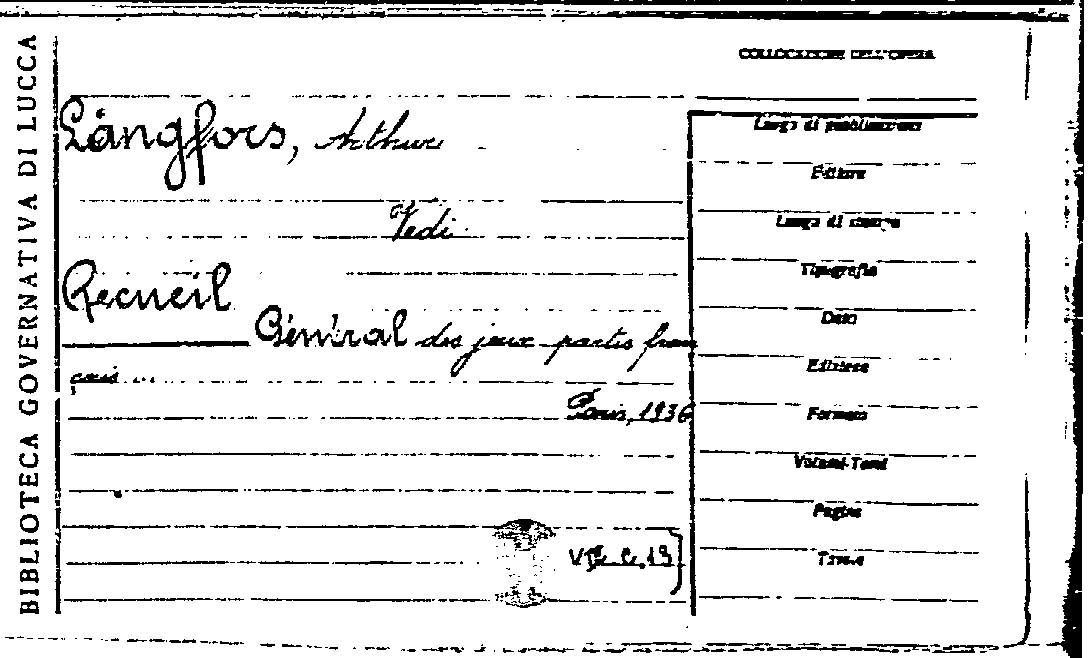 BIBLIOTECA GOVERNATIVA DI LUCCA
COLLOCAZIONE DELL'OPERA
Långfors, Arthur
Vedi
Recueil
Général des jeux partis fran
çais ...
Paris, 1936
Luogo di pubblicazione
Editore
Luogo di stampa
Tipografia
Data
Edizione
Formato
Volumi-Tomi
Pagine
Tavole